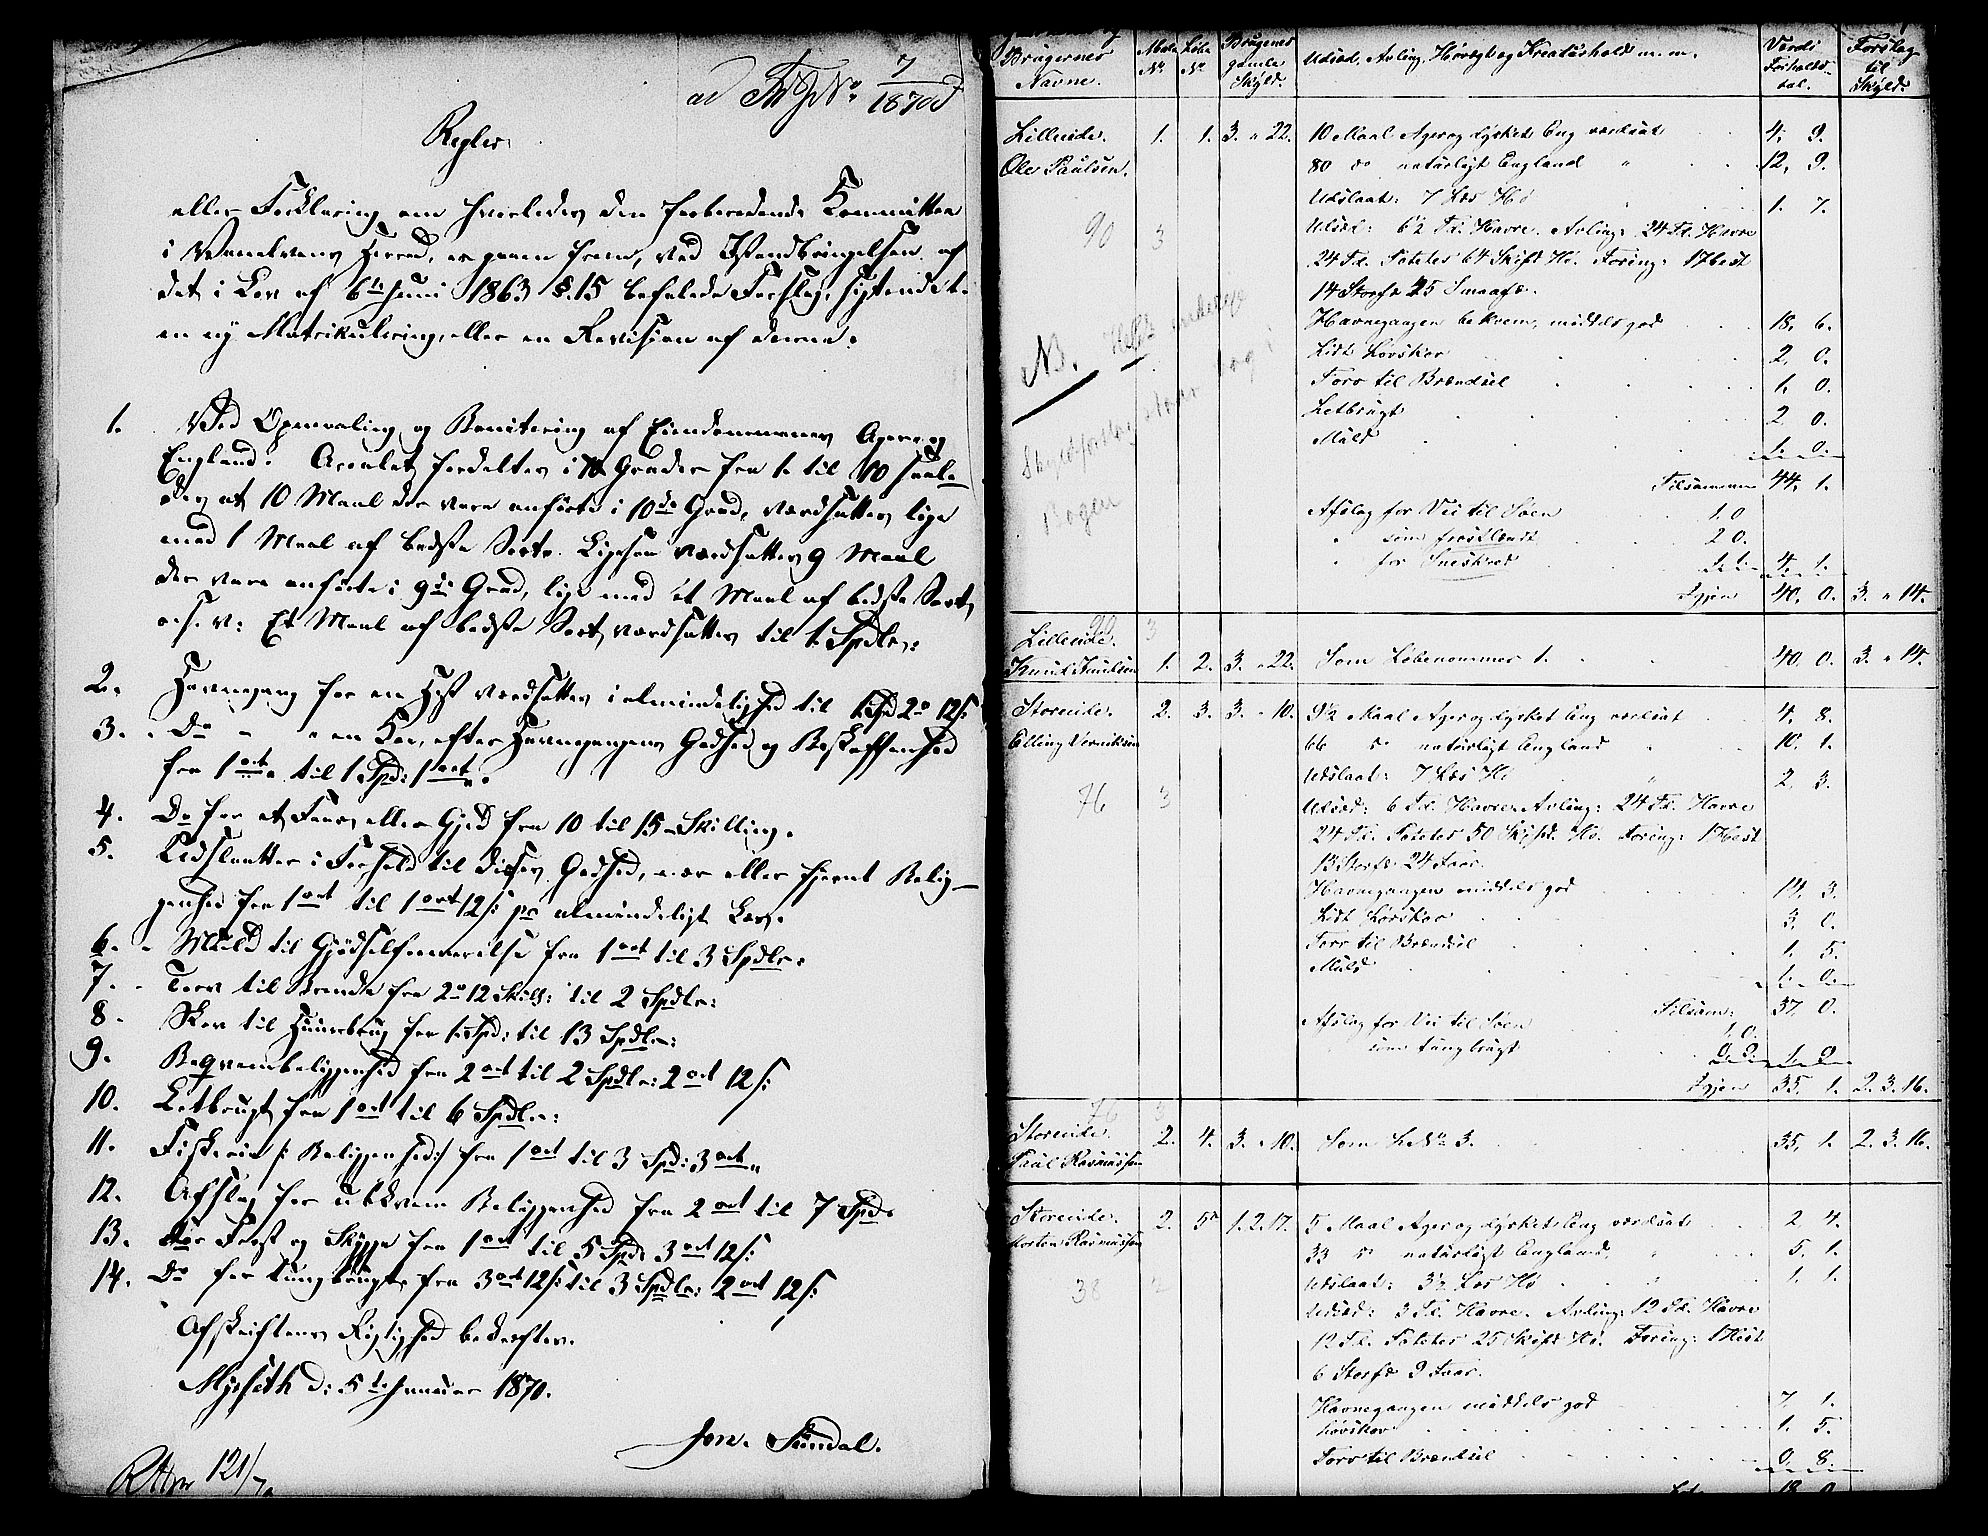 ad No. 7/1870
Regler
eller Forklaring om hvorledes den forberedende Committee
i Vanelvens Herred, er gaaen frem, ved Istandbringelsen af
det i Lov af 6te Juni 1863 §.15 befalede Forslag, sigtende t.
en ny Matrikulering, eller en Revision af denne.
1. Ved Opmaaling og Bonitering af Eiendommenes Ager og
England. Arealet fordeltes i 10 Grader fra 1. til 10 saale-
des at 10 Maal der vare anførte i 10de Grad, værdsattes lige
med 1 Maal af bedste Sort. Ligesaa værdsattes 9 Maal
der vare anførte i 9de Grad, lige med et Maal af bedste Sort,
o.s.v: Et Maal af bedste Sort værdsattes til 1. Spdlr:
2. Havnegang for en Hest værdsattes i almindelighed til 1 Spd 2 o 12 s:
3. Do " " en Ko, efter Havnegangens Godhed og Beskaffenhed
fra 1 ort til 1 Spd: 1 ort.
4. Do for et Faar eller Gjed fra 10 til 15 Skilling.
5. Udslaatter i Forhold til disses Godhed, nær eller fjernt Belig-
genhed fra 1 ort til 1 ort 12 s: pr almindeligt Læs.
6. Muld til Gjødselformerelse fra 1 ort til 3 Spdlr:
7. Torv til Brænde fra 2 o 12 Skill: til 2 Spdlr:
8. Skov til Huusbrug fra 1. Spd: til 13 Spdlr:
9. Beqvembeliggenhed fra 2 ort til 2 Spdlr: 2 ort 12 s:
10. Letbrugt fra 1 ort til 6 Spdlr:
11. Fiskerie /: Beliggenhed :/ fra 1 ort til 3 Spd: 3 ort
12. Afslag for ubekvem Beliggenhed fra 2 ort til 7 Spd.
13. Do for Frost og Skygge fra 1 ort til 5 Spd: 3 ort 12 s:
14. Do for tungbrugt fra 3 ort 12 s: til 3 Spdlr: 2 ort 12 s:
Afskriftens Rigtighed bekræftes.
Myrseth d: 5te Januar 1870.
Jon. Sundal.
121/70
Brugernes Navne. Matr. No. Løbe No. Brugenes gamle Skyld. Udsæd, Avling, Høvægt og Kreaturhold m. m. Værdi Forholds- tal. Forslag til Skyld.
Lilleeide. 1. 1. 3. " 22. 10 Maal Ager og dyrket Eng værdsat 4. 9.
Ole Paulsen. 80 do naturligt England " 12. 9.
Udslaat: 7 Læs Hø 1. 7.
90 3 Udsæd: 6½ Td. Havre. Avling: 24 Td. Havre
24 Td. Poteter 64 Skipd Hø. Foring: 1 Hest
14 Storfæ 25 Smaafæ.
Havnegangen bekvem, middels god 18. 6.
Lidt Løvskov 2. 0.
Torv til Brændsel 1. 0.
Letbrugt 2 0.
Muld 1. 0.
NB.
Skyldforslag staar bag i
Bogen
Tilsammen 44. 1.
Afslag for Vei til Søen 1. 0
" som frostlændt 2 0.
" for Sneskred 1. 1. 4. 1.
Igjen 40. 0. 3. " 14.
90 3
Lilleeide.
Knud Paulsen 1. 2. 3. " 22. Som Løbenummer 1. 40. 0. 3. " 14.
Storeide. 2. 3. 3. " 10. 9½ Maal Ager og dyrket Eng værdsat 4. 8.
Elling Verniksen 66 do naturligt England " 10. 1.
Udslaat: 7 Læs Hø " 2 3.
76 3 Udsæd: 6 Td. Havre. Avling: 24 Td. Havre
24 Td. Poteter 50 Skipd. Hø. Foring: 1 Hest
13 Storfæ 24 Faar.
Havnegangen middels god 14. 3.
Lidt Løvskov 3. 0.
Torv til Brændsel 1. 5.
Muld 1. 0.
Tilsam: 37. 0.
Afslag for Vei til Søen 1. 0.
" som tungbrugt
Igjen 35. 1. 2. 3. 16.
76 3
Storeide. 2. 4. 3. " 10. Som L No 3. 35. 1. 2. 3. 16.
Paul Rasmussen
Storeide. 2. 5. 1. 2. 17. 5 Maal Ager og dyrket Eng værdsat 2 4.
Morten Rasmussen 33 do naturligt England, " 5. 1.
Udslaat: 3½ Læs Hø " 1. 1.
38 2 Udsæd: 3 Td. Havre. Avling: 12 Td. Havre
12 Td. Poteter 25 Skipd Hø. Foring: 1 Hest
6 Storfæ 9 Faar.
Havnegangen middels god 7. 1.
Løvskov 1. 5.
Torv til Brændsel 0. 8.
18 0